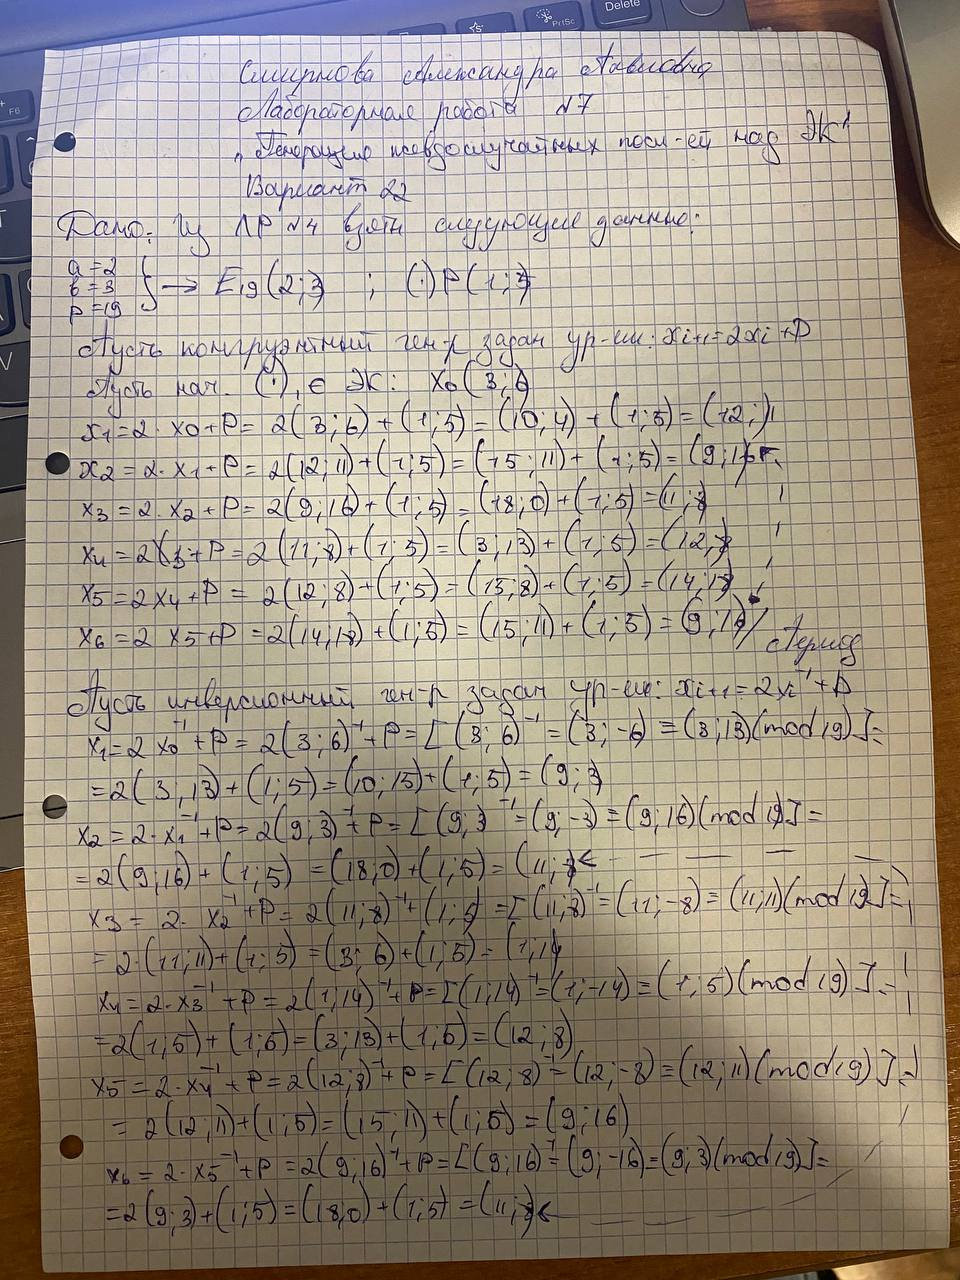 Delete
PrtSc
F6
Смирнова Александра Павловна
Лабораторная работа №7
„Генерация псевдослучайных посл-ей над ЭК"
Вариант 22
Дано: Из ЛР №4 взяты следующие данные:
a = 2
b = 3
p = 19
→ E19(2;3) ; (·)P(1;5)
Пусть конгруэнтный ген-р задан ур-ем: xi+1=2xi+P
Пусть нач. (·), ∈ ЭК: x0(3;6)
x1=2·x0+P= 2(3;6)+(1;5)=(10;4)+(1;5)=(12;11)
x2=2·x1+P=2(12;11)+(1;5)=(15;11)+(1;5)=(9;16)
x3=2·x2+P=2(9;16)+(1;5)=(18;0)+(1;5)=(11;8)
x4=2x3+P=2(11;8)+(1;5)=(3;13)+(1;5)=(12;8)
x5=2x4+P= 2(12;8)+(1;5)=(15;8)+(1;5)=(14;18)
x6=2 x5+P=2(14;18)+(1;5)=(15;11)+(1;5)=(9;16)
Период
Пусть инверсионный ген-р задан ур-ем: xi+1=2xi⁻¹+P
x1=2 x0⁻¹+P= 2(3;6)⁻¹+P=[(3;6)⁻¹=(3;-6)≡(3;13)(mod 19)]=
=2(3;13)+(1;5)=(10;15)+(1;5)=(9;3)
x2=2·x1⁻¹+P=2(9;3)⁻¹+P=[(9;3)⁻¹=(9;-3)≡(9;16)(mod 19)]=
=2(9;16)+(1;5)=(18;0)+(1;5)=(11;8)
x3= 2·x2⁻¹+P= 2(11;8)⁻¹+(1;5)=[(11;8)⁻¹=(11;-8)=(11;11)(mod 19)]=
=2·(11;11)+(1;5)=(3;6)+(1;5)=(1;14)
x4=2·x3⁻¹+P=2(1;14)⁻¹+P=[(1;14)⁻¹=(1;-14)=(1;5)(mod 19)]=
=2(1;5)+(1;5)=(3;13)+(1;5)=(12;8)
x5=2·x4⁻¹+P=2(12;8)⁻¹+P=[(12;8)⁻¹=(12;-8)≡(12;11)(mod 19)]=
= 2(12;11)+(1;5)=(15;11)+(1;5)=(9;16)
x6=2·x5⁻¹+P=2(9;16)⁻¹+P=[(9;16)⁻¹=(9;-16)=(9;3)(mod 19)]=
=2(9;3)+(1;5)=(18;0)+(1;5)=(11;8)